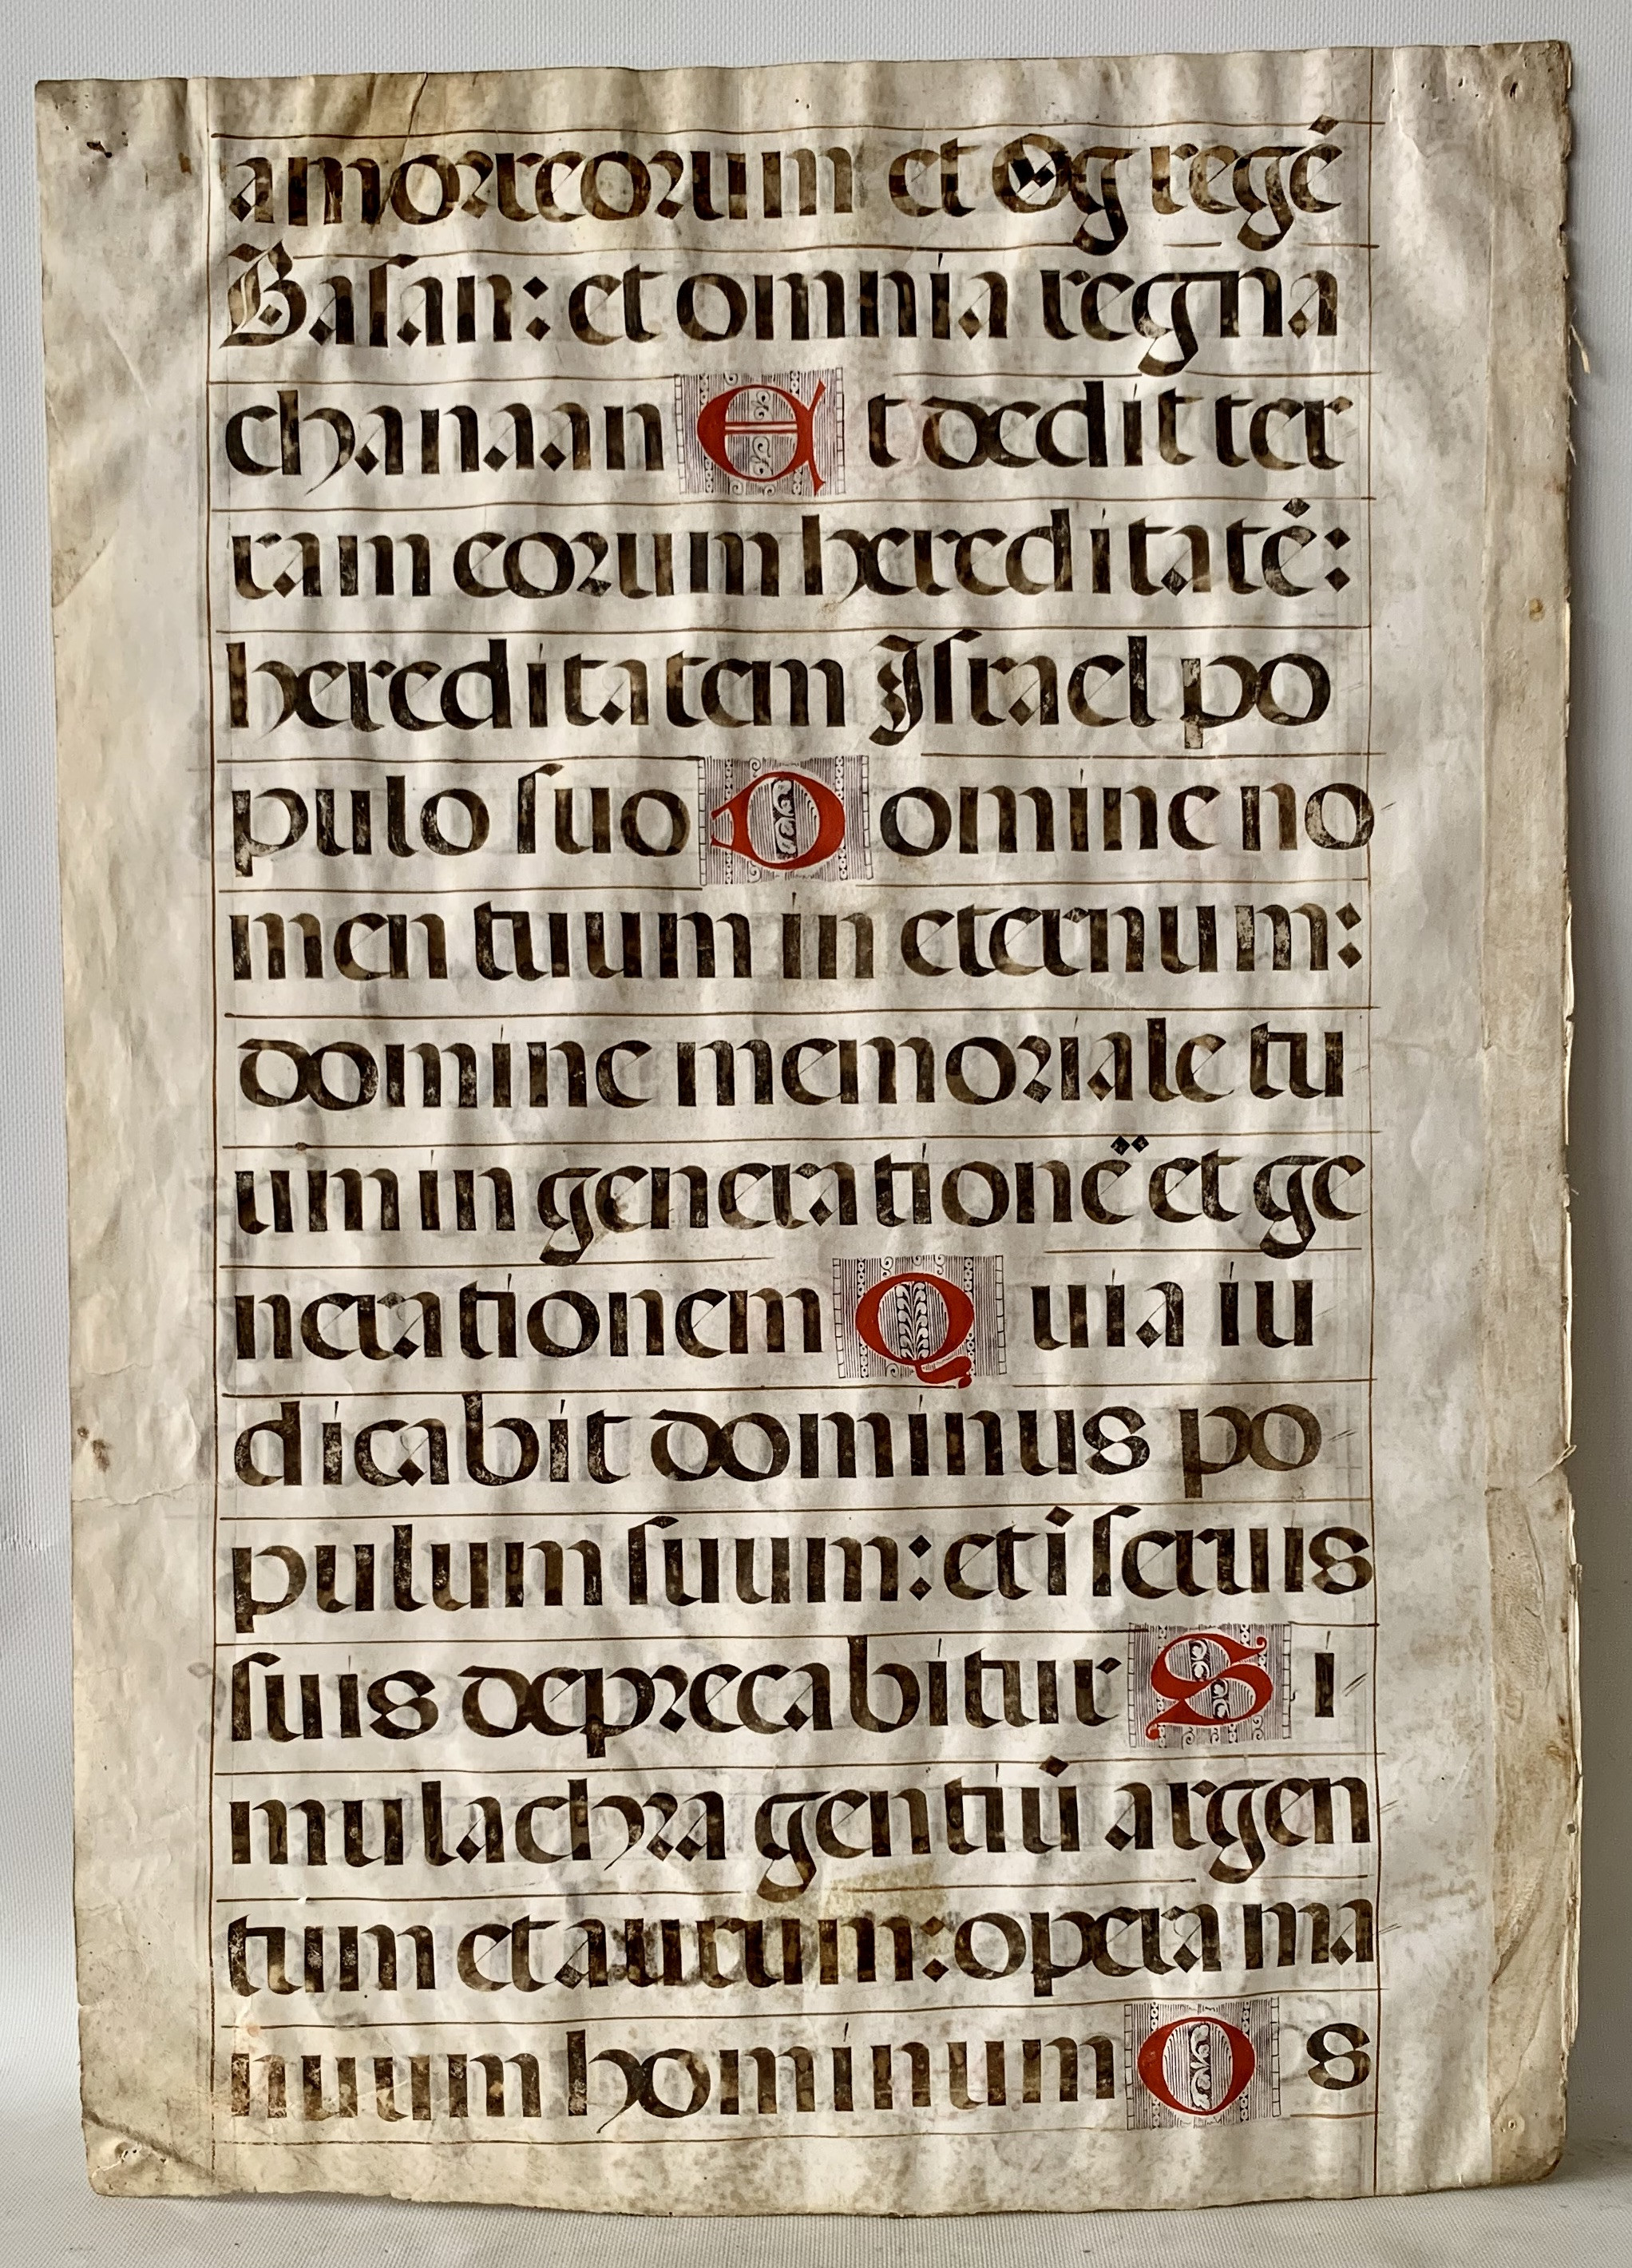 amorreorum et Og regē
Basan: et omnia regna
chanaan Et dedit ter
ram eorum hereditatē:
hereditatem Israel po
pulo suo Domine no
men tuum in eternum:
domine memoriale tu
um in generationē et ge
nerationem Quia iu
dicabit dominus po
pulum suum: et i seruis
suis deprecabitur Si
mulachra gentiū argen
tum et aurum: opera ma
nuum hominum Os